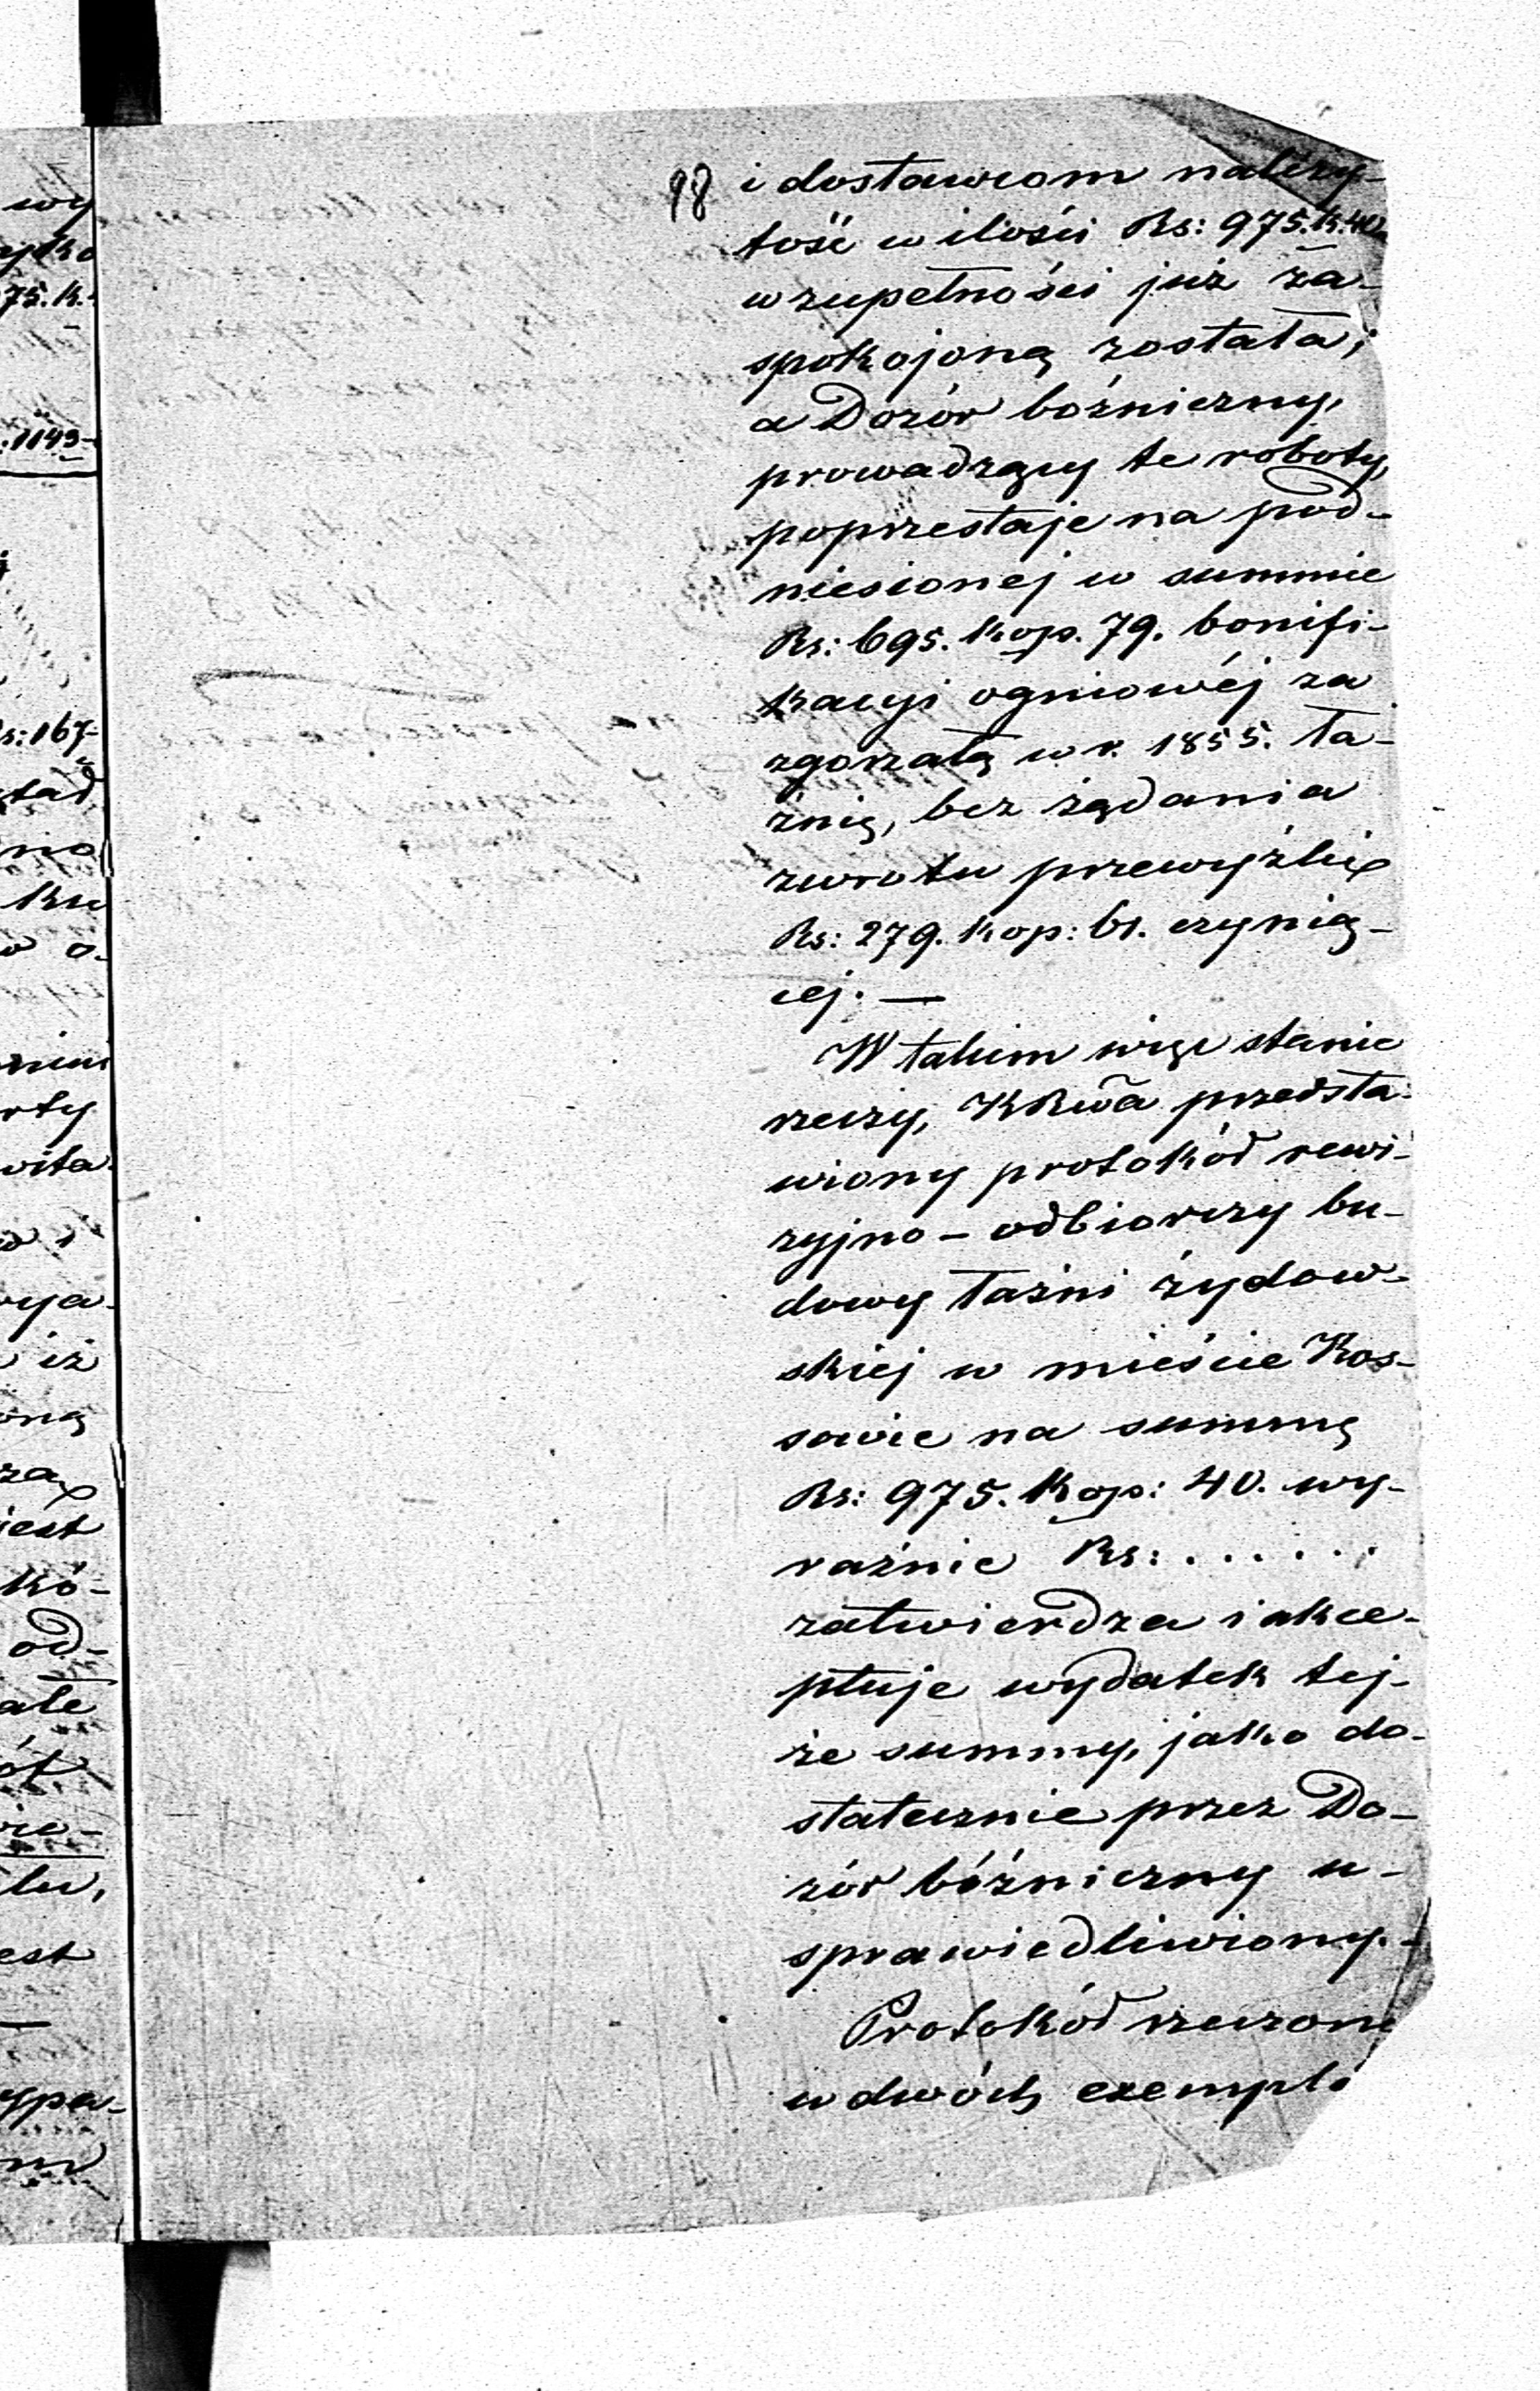 98 i dostawcom należy-
tość w ilości Rs: 975. k. 40.
w zupełności już za-
spokojoną została;
a Dozór bóżniczny,
prowadzący te roboty,
poprzestaje na pod-
niesionej w summie
Rs: 695. Kop. 79. bonifi-
kacyi ogniowéj za
zgorzałą w r. 1855. ła-
źnię, bez żądania
zwrotu przewyżki
Rs: 279. Kop: 61. czynią-
cej. —
W takim więc stanie
rzeczy, KRwa przedsta-
wiony protokół rewi-
zyjno-odbiorczy bu-
dowy łaźni żydow-
skiej w mieście Kos-
sowie na summę
Rs: 975. Kop: 40. wy-
raźnie Rs: . . . . . .
zatwierdza i akce-
ptuje wydatek tej-
że summy, jako do-
statecznie przez Do-
zór bóżniczny u-
sprawiedliwiony. -
Protokół rzeczony
w dwóch exempla
wy
75. K.
1143-
Rs: 167-
ku
iż
jest
kó-
od-
est